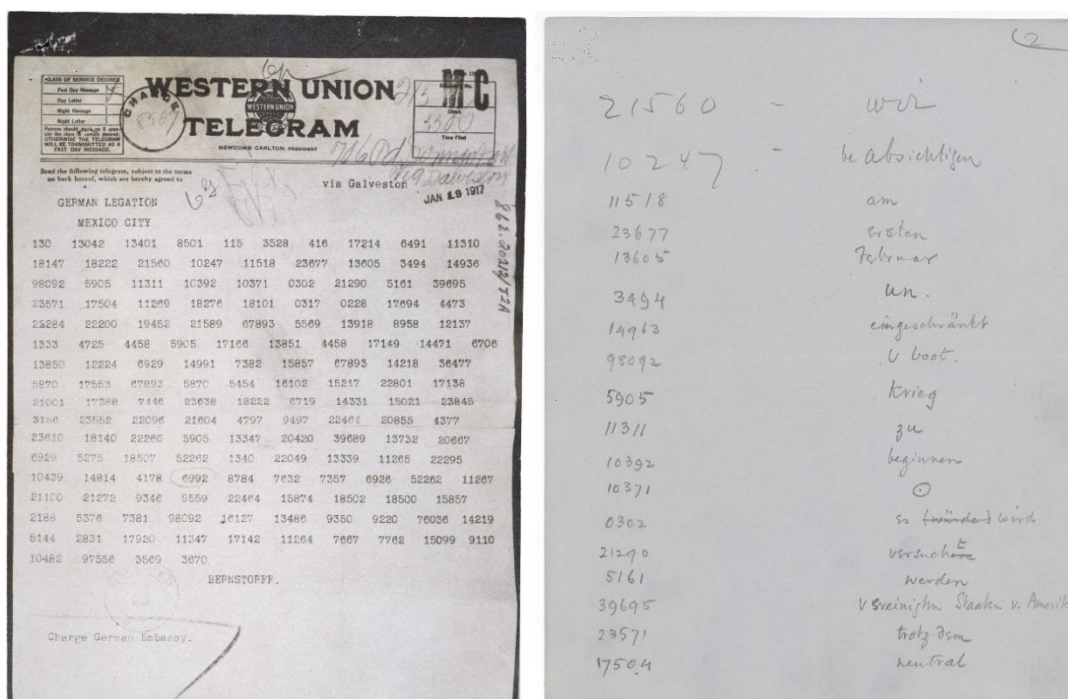 CLASS OF SERVICE DESIRED
Fast Day Message
Day Letter
Night Message
Night Letter
Patrons should mark an X oppo-
site the class of service desired;
OTHERWISE THE TELEGRAM
WILL BE TRANSMITTED AS A
FAST DAY MESSAGE.
WESTERN UNION
WESTERN UNION
TELEGRAM
NEWCOMB CARLTON, PRESIDENT
CHARGE
MC
Time Filed
Send the following telegram, subject to the terms
on back hereof, which are hereby agreed to
via Galveston
JAN 19 1917
862.20212/82A
GERMAN LEGATION
MEXICO CITY
130 13042 13401 8501 115 3528 416 17214 6491 11310
18147 18222 21560 10247 11518 23677 13605 3494 14936
98092 5905 11311 10392 10371 0302 21290 5161 39695
23571 17504 11269 18276 18101 0317 0228 17694 4473
23284 22200 19452 21589 67893 5569 13918 8958 12137
1333 4725 4458 5905 17166 13851 4458 17149 14471 6706
13850 12224 6929 14991 7382 15857 67893 14218 36477
5870 17553 67893 5870 5454 16102 15217 22801 17138
21001 17388 7446 23638 18222 6719 14331 15021 23845
3156 23552 22096 21604 4797 9497 22464 20855 4377
23610 18140 22260 5905 13347 20420 39689 13732 20667
6929 5275 18507 52262 1340 22049 13339 11265 22295
10439 14814 4178 6992 8784 7632 7357 6926 52262 11267
21100 21272 9346 9559 22464 15874 18502 18500 15857
2188 5376 7381 98092 16127 13486 9350 9220 76036 14219
5144 2831 17920 11347 17142 11264 7667 7762 15099 9110
10482 97556 3569 3670
BERNSTORFF.
Charge German Embassy.
2
21560 - wir
10247 - beabsichtigen
11518 am
23677 ersten
13605 Februar
3494 un.
14963 eingeschränkt
98092 U boot.
5905 krieg
11311 zu
10392 beginnen
10371 ⊙
0302 es wird
21290 versucht
5161 werden
39695 Vereinigten Staaten v. Amerika
23571 trotzdem
17504 neutral